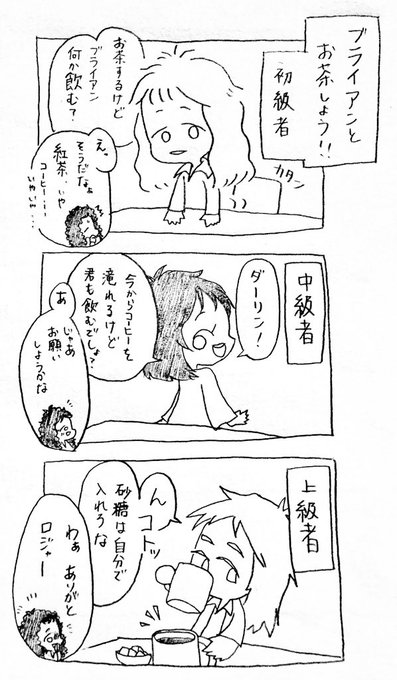 ブライアンと
お茶しよう!!
初級者
お茶するけど
ブライアン
何か飲む?
カタン
え、
そうだなぁ
紅茶…いや
コーヒー……
いやいや…
中級者
ダーリン!
今からコーヒーを
滝れるけど
君も飲むでしょ?
あ
じゃあ
お願い
しようかな
上級者
ん
コトッ
砂糖は自分で
入れろな
わぁ ありがと
ロジャー